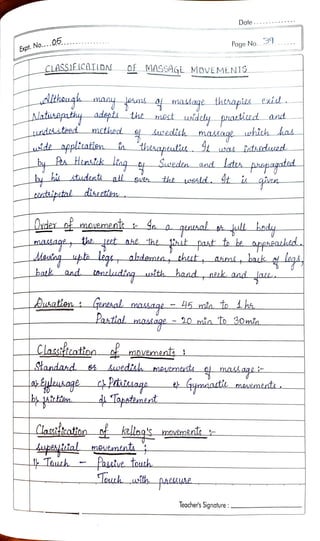 Date ..............
Expt. No....05..............
Page No. 39
CLASSIFICATION OF MASSAGE MOVEMENTS
Although many forms of massage therapies exist.
Naturopathy adopts the most widely practiced and
understood method of swedish massage which has
wide application in therapeutics. It was introduced
by Per Henrick ling of Sweden and later propagated
by his students all over the world. It is given
centripetal direction.
Order of movements :- In a general or full body
massage, the feet are the first part to be approached.
Moving upto legs, abdomen, chest, arms, back of legs,
back and concluding with hand, neck and face.
Duration : General massage - 45 min to 1 hr
Partial massage - 20 min To 30min
Classification of movements :
Standard or swedish movements of massage :-
a) Effleurage c) Petrissage e) Gymnastic movements.
b) friction d) Tapotement
Classification of kellog's movements :-
superficial movements ;
1) Touch - Passive touch
Touch with pressure
Teacher's Signature :